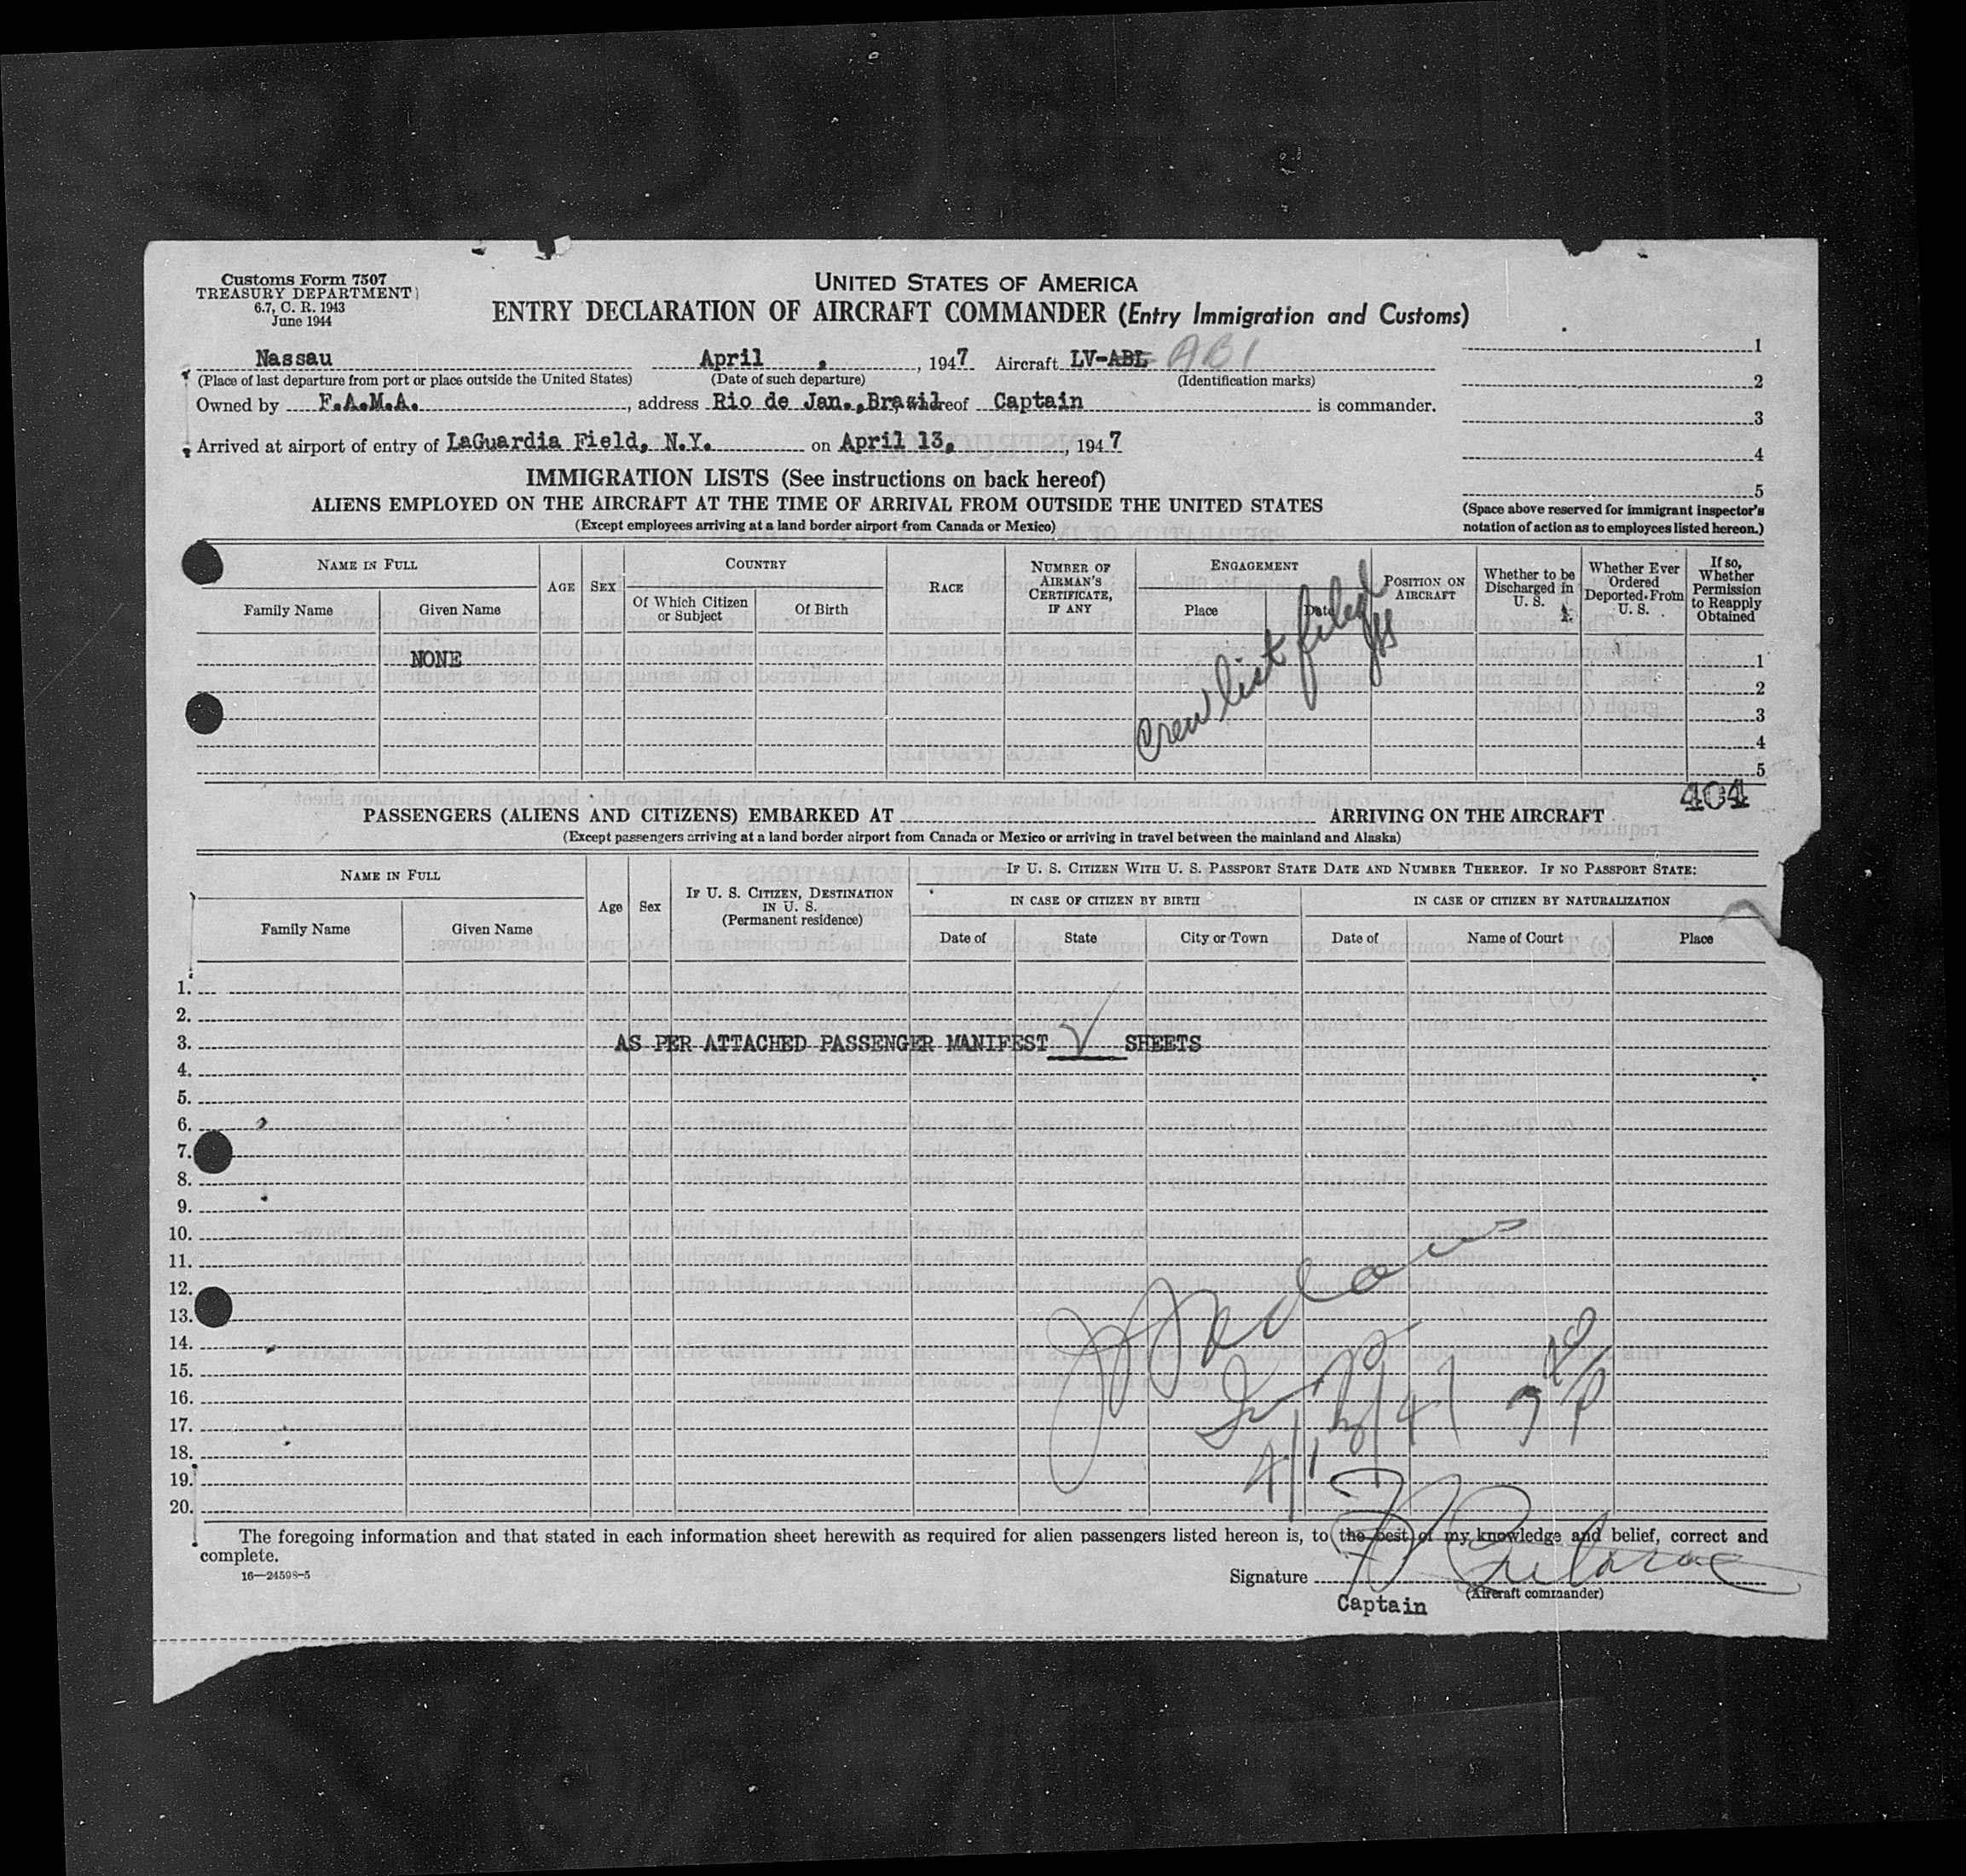 Customs Form 7507
TREASURY DEPARTMENT
6.7, C. R. 1943
June 1944
UNITED STATES OF AMERICA
ENTRY DECLARATION OF AIRCRAFT COMMANDER (Entry Immigration and Customs)
Nassau April , 1947 Aircraft LV-ABL ABI
(Place of last departure from port or place outside the United States) (Date of such departure) (Identification marks)
Owned by F.A.M.A., address Rio de Jan., Brasil whereof Captain is commander.
Arrived at airport of entry of LaGuardia Field, N.Y. on April 13, 1947
1
2
3
4
5
(Space above reserved for immigrant inspector's
notation of action as to employees listed hereon.)
IMMIGRATION LISTS (See instructions on back hereof)
ALIENS EMPLOYED ON THE AIRCRAFT AT THE TIME OF ARRIVAL FROM OUTSIDE THE UNITED STATES
(Except employees arriving at a land border airport from Canada or Mexico)
NAME IN FULL
Family Name
Given Name
AGE
SEX
COUNTRY
Of Which Citizen
or Subject
Of Birth
RACE
NUMBER OF
AIRMAN'S
CERTIFICATE,
IF ANY
ENGAGEMENT
Place
Date
POSITION ON
AIRCRAFT
Whether to be
Discharged in
U. S.
Whether Ever
Ordered
Deported From
U. S.
If so,
Whether
Permission
to Reapply
Obtained
NONE
Crew list filed
1
2
3
4
5
404
PASSENGERS (ALIENS AND CITIZENS) EMBARKED AT ARRIVING ON THE AIRCRAFT
(Except passengers arriving at a land border airport from Canada or Mexico or arriving in travel between the mainland and Alaska)
NAME IN FULL
Family Name
Given Name
Age
Sex
IF U. S. CITIZEN, DESTINATION
IN U. S.
(Permanent residence)
IF U. S. CITIZEN WITH U. S. PASSPORT STATE DATE AND NUMBER THEREOF. IF NO PASSPORT STATE:
IN CASE OF CITIZEN BY BIRTH
IN CASE OF CITIZEN BY NATURALIZATION
Date of
State
City or Town
Date of
Name of Court
Place
1.
2.
3. AS PER ATTACHED PASSENGER MANIFEST SHEETS
4.
5.
6.
7.
8.
9.
10.
11.
12.
13.
14.
15.
16.
17.
18.
19.
20.
4/13/47
The foregoing information and that stated in each information sheet herewith as required for alien passengers listed hereon is, to the best of my knowledge and belief, correct and
complete.
16—24598-5
Signature
(Aircraft commander)
Captain